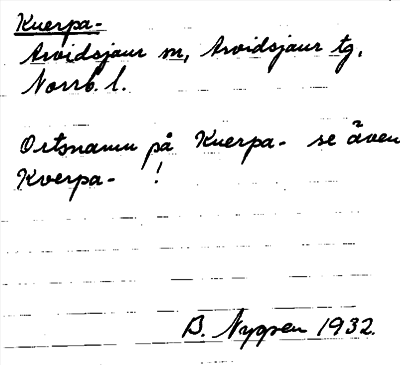 Kuerpa-
Arvidsjaur m, Arvidsjaur tg.
Norrb. l.
Ortsnamn på Kuerpa- se även
Kverpa- !
B. Nygren 1932.